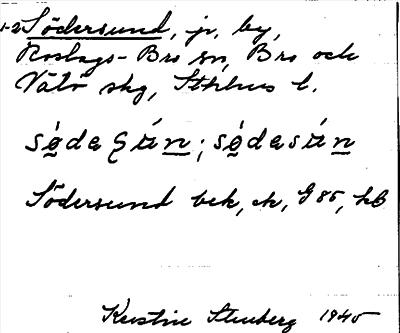 1-2 Södersund, jr, by,
Roslags-Bro sn, Bro och
Vätö skg, Sthlms l.
södeSún; södesún
Södersund bek, ek, G 85, LB
Kerstin Stenberg 1945